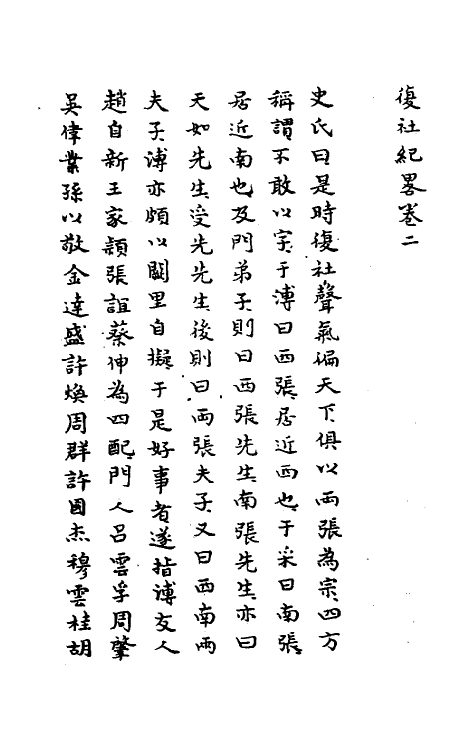 復社紀畧卷二
史氏曰是時復社聲氣徧天下俱以兩張為宗四方
稱謂不敢以字于溥曰西張居近西也于采曰南張
居近南也及門弟子則曰西張先生南張先生亦曰
天如先生受先先生後則曰兩張夫子又曰西南兩
夫子溥亦頗以闕里自擬于是好事者遂指溥友人
趙自新王家穎張誼蔡伸為四配門人呂雲孚周肇
吳偉業孫以敬金達盛許煥周群許國杰穆雲桂胡